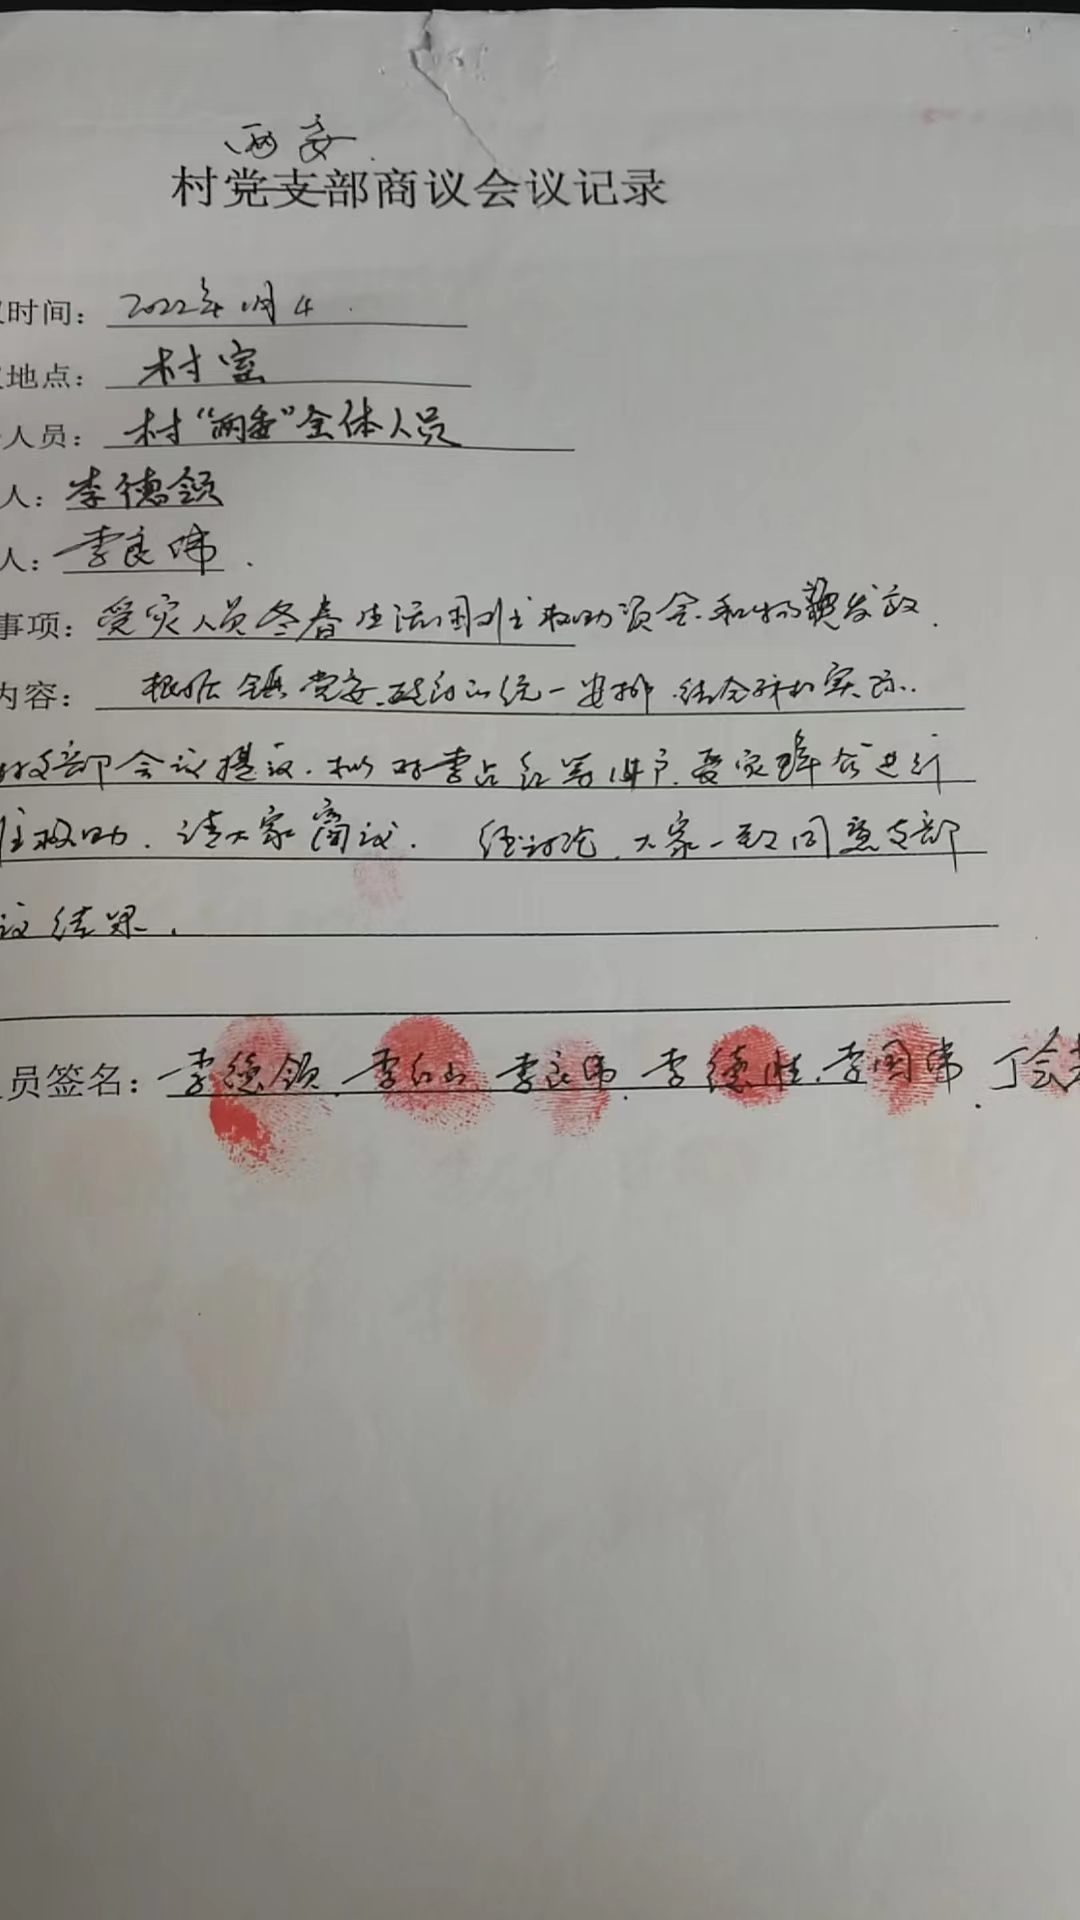 两委
村党支部商议会议记录
议时间：2022年11月4
地点：村室
人员：村“两委”全体人员
人：李德领
人：李良伟.
事项：受灾人员冬春生活困难救助资金和物资发放.
内容：根据镇党委、政府的统一安排.结合我村实际..
村支部会议提议.拟对李占红等 户受灾群众进行
救助.请大家商议.经讨论.大家一致同意支部
议结果.
员签名：李德领.李红山.李良伟.李德胜.李国伟.丁会